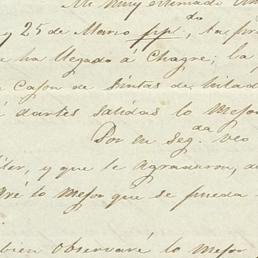 Mi muy estimado
y 25 de Marzo ppdo., tu
ha llegado a Chagre; la
Cajon de Tintas de hilad
dartes salidas lo mejor
Por su segda. veo
y que te agradaron, d
lo mejor que se pueda
bien observaré lo mejor